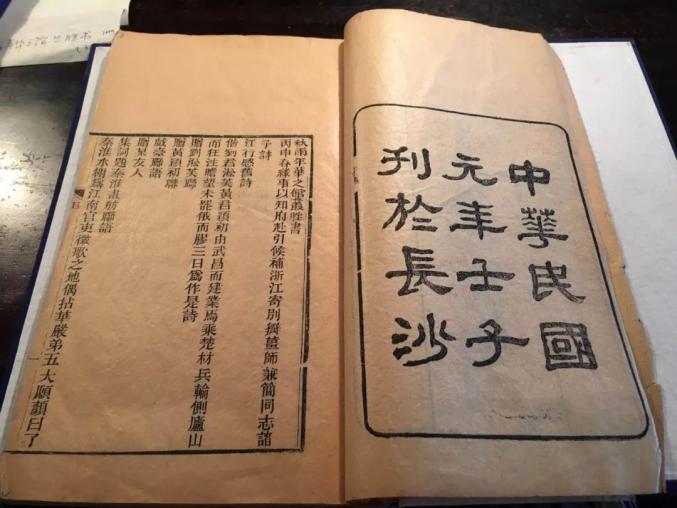 中華民國
元年壬子
刊於長沙
秋雨年華之館叢脞書
丙申春緣事以知府赴引候補浙江寄別瓣薑師兼簡同志諸
子詩
江行感舊詩
偕劉君淞芙黃君穎初由武昌而建業焉乘楚材兵輪側廬山
而狂注瞻望未罷俄而膠三日爲作是詩
贈劉淞芙聯
贈黃穎初聯
戲臺聯語
贈友人
集詞題秦淮畫舫聯語
秦淮水榭爲江南官吏徵歌之地偶拈華嚴第五大願顏曰了
一